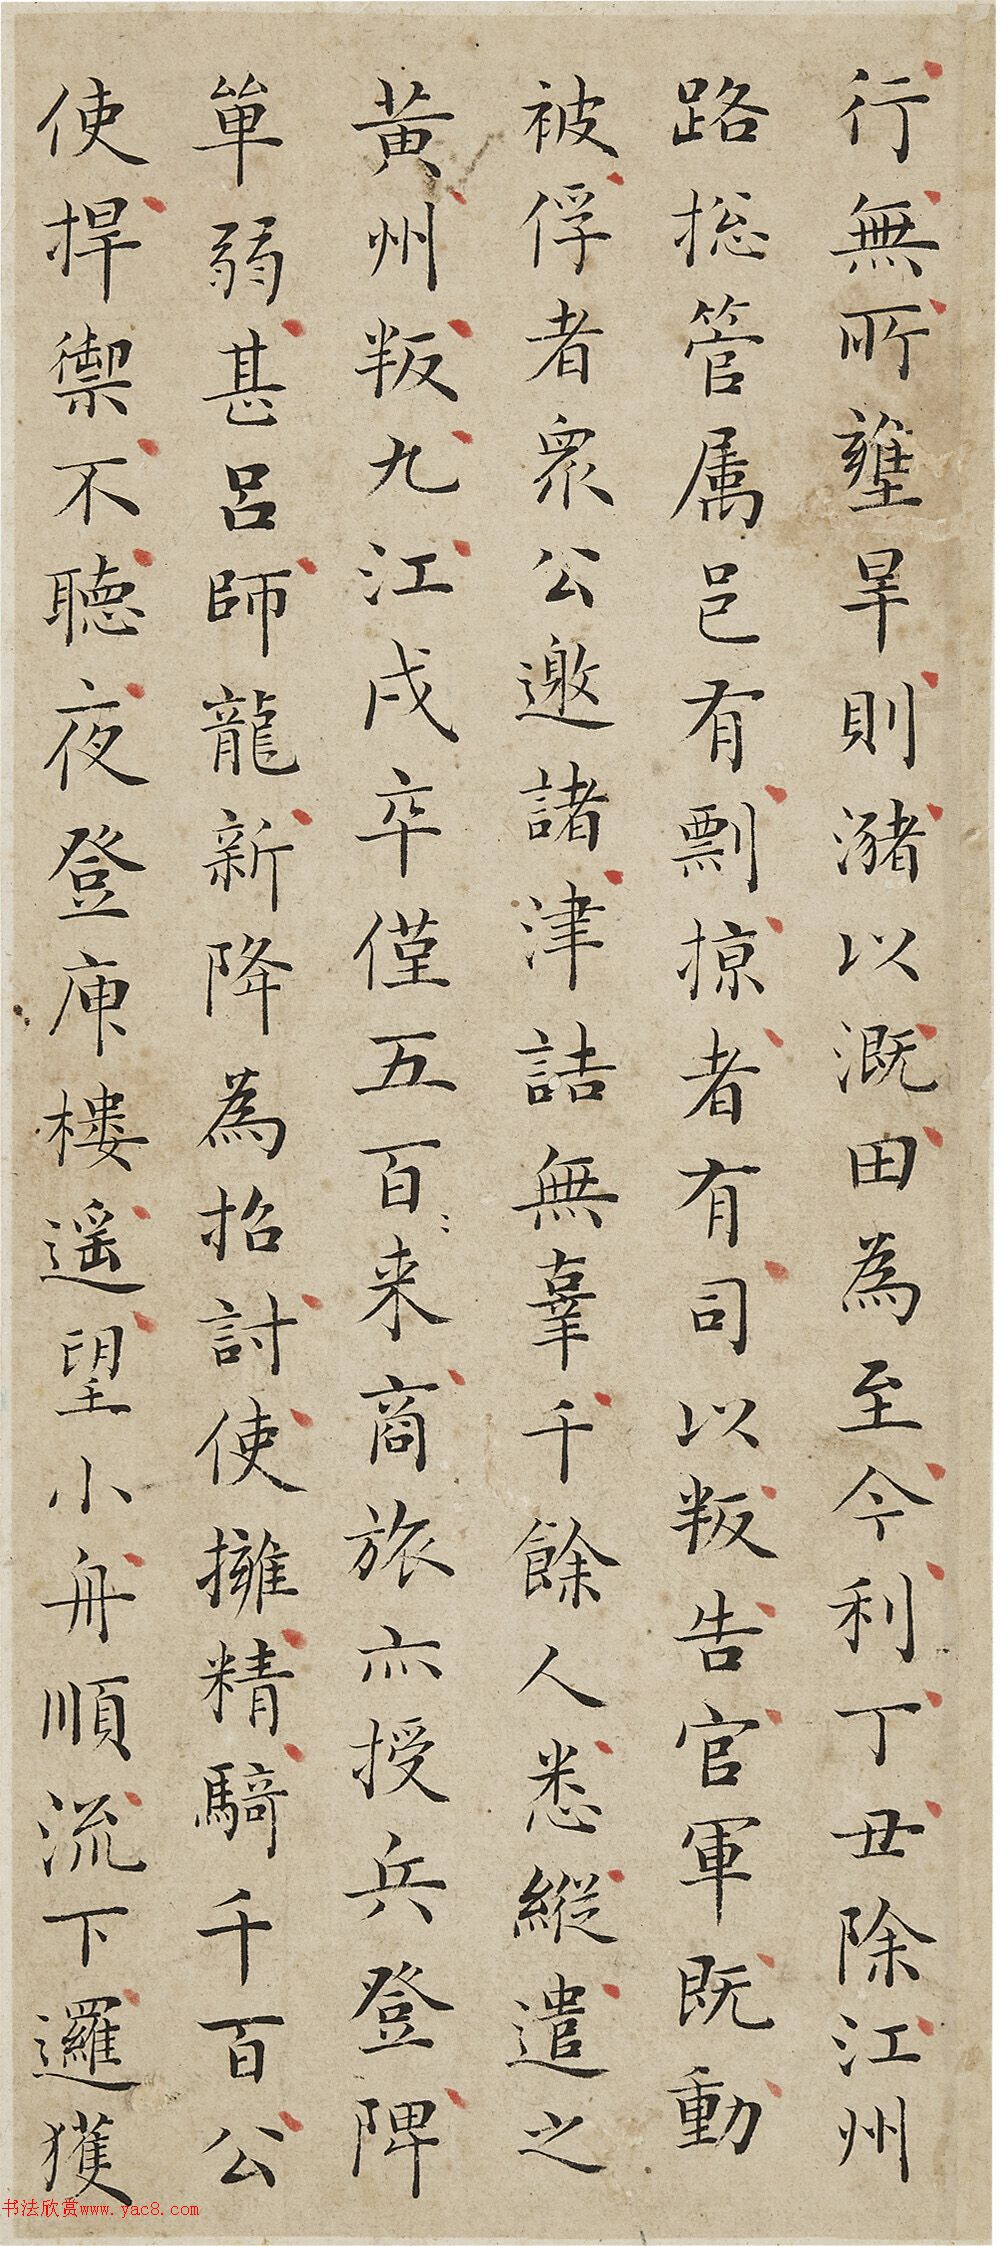 行無所壅旱則瀦以溉田為至今利丁丑除江州
路揔管属邑有剽掠者有司以叛告官軍既動
被俘者衆公邀諸津詰無辜千餘人悉縱遣之
黃州叛九江戍卒僅五百来商旅亦授兵登陴
單弱甚呂師龍新降為招討使擁精騎千百公
使捍禦不聽夜登庾樓遥望小舟順流下邏獲
书法欣赏www.yac8.com